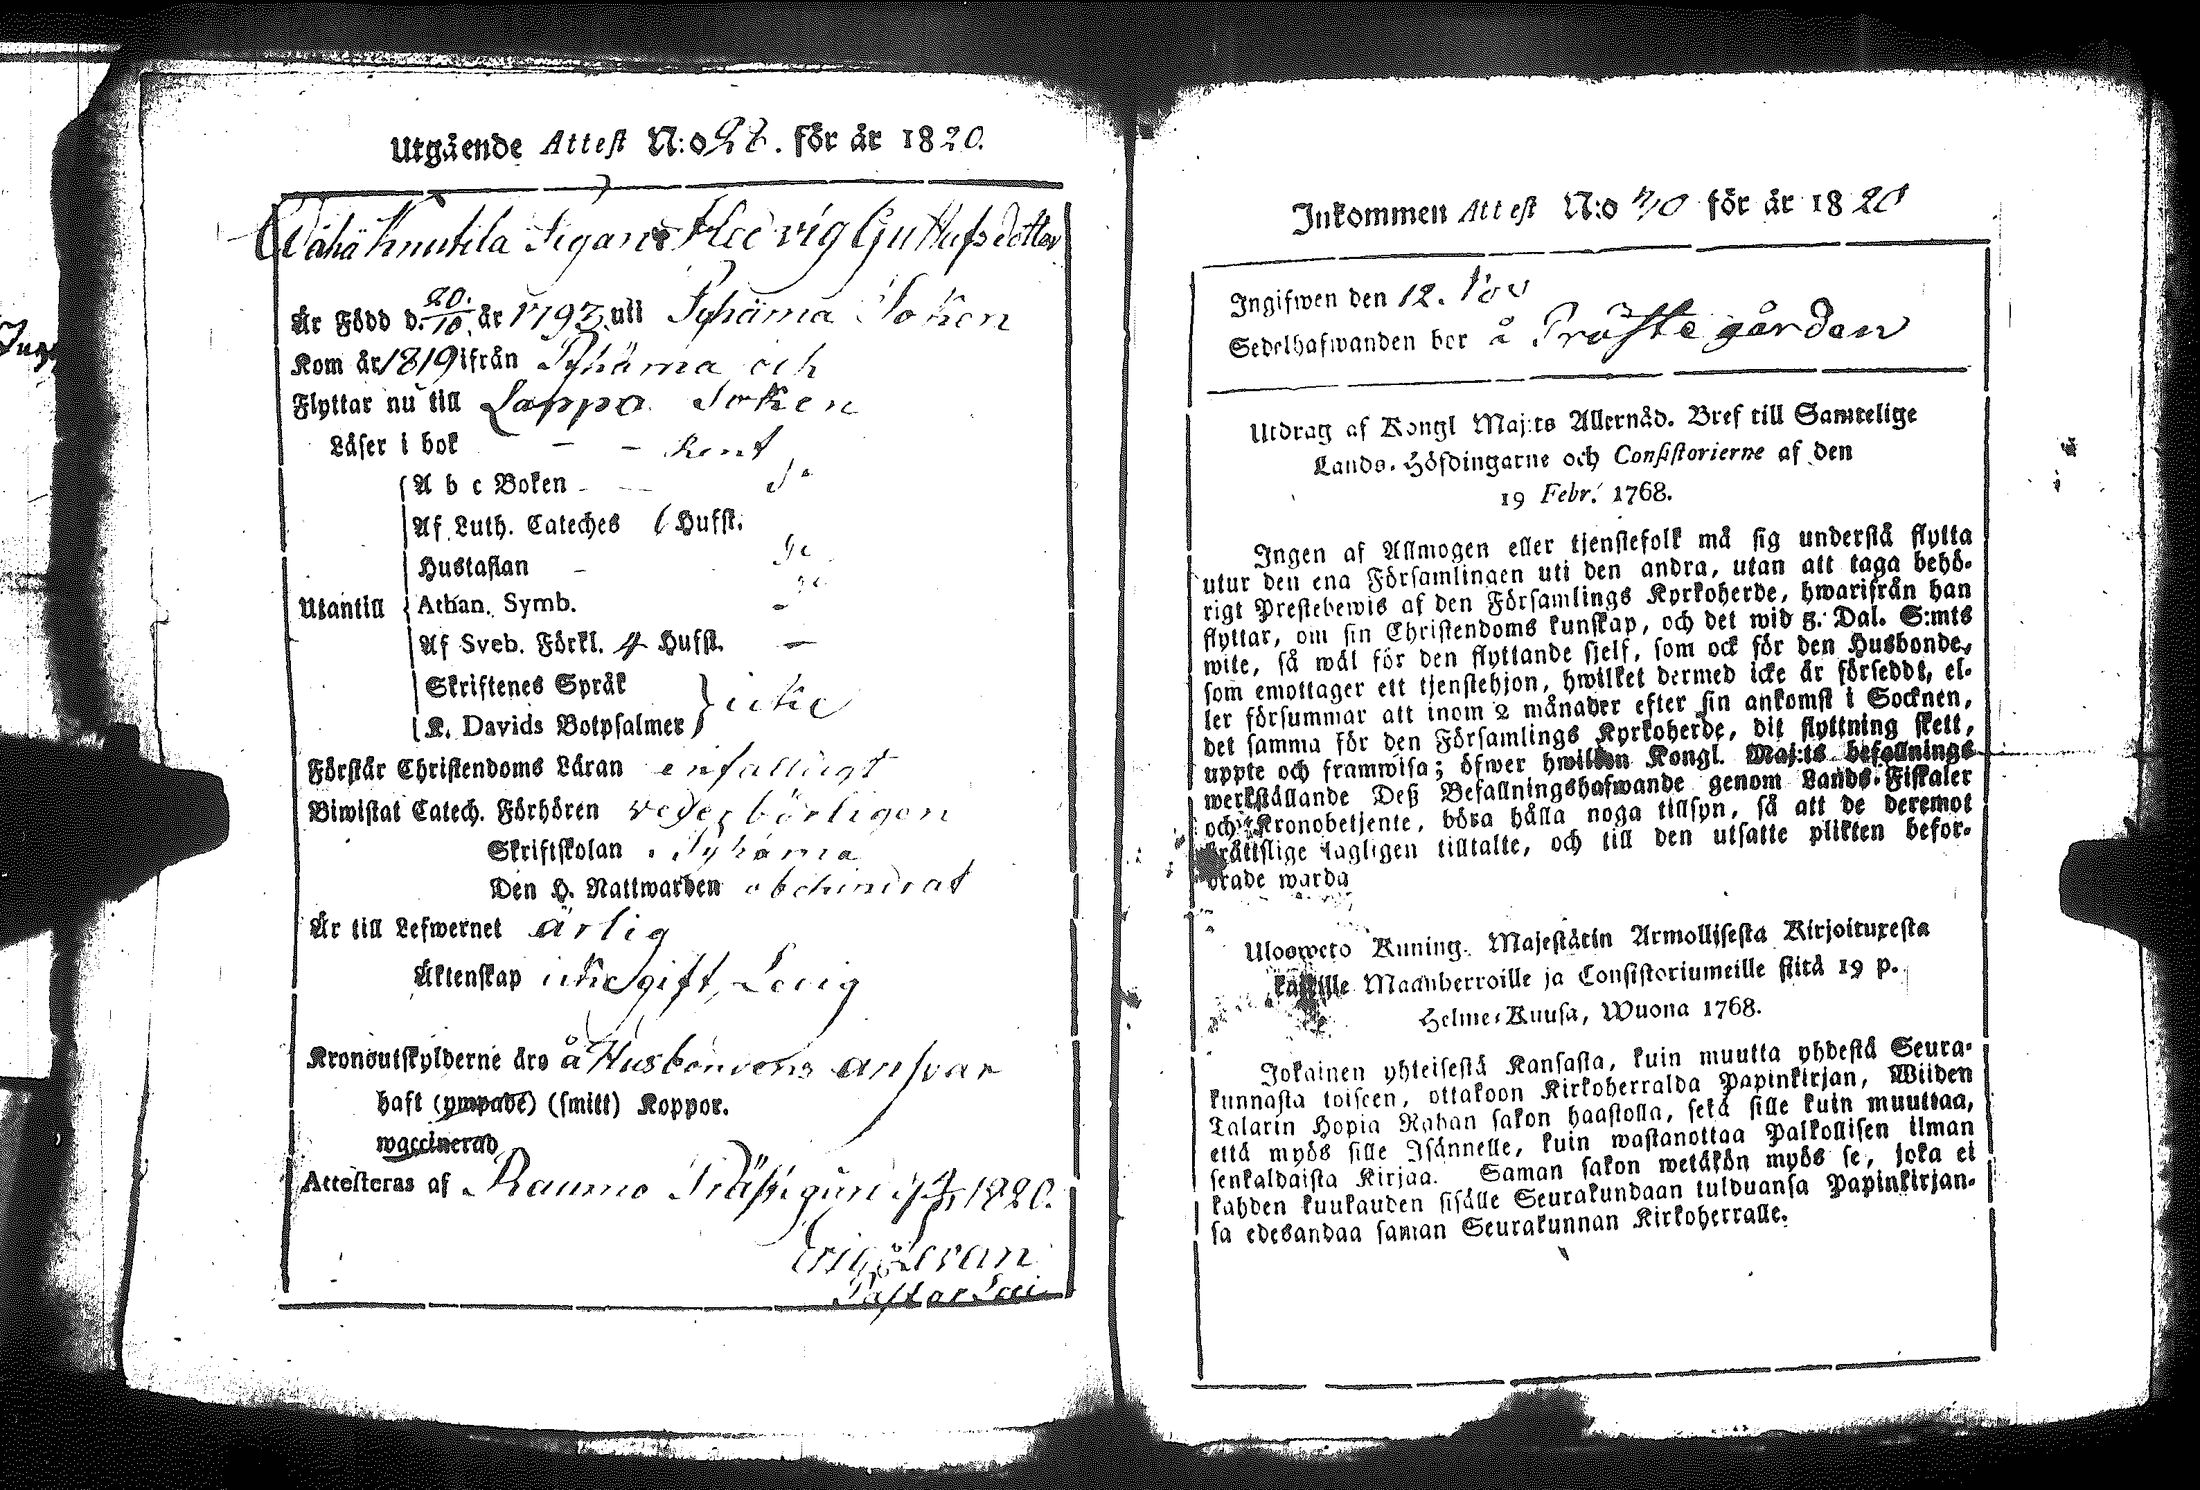 Utgående Attest N:o 22. för år 1820.
Wähä Knutila Pigan Hedvig Gustafsdotter
Är Född d. 20/10 år 1793 uti Pyhäma Soken
Kom år 1819 ifrån Pyhäma och
Flyttar nu till Lappo Soken
Läser i bok - - Rent
A b c Boken - - Ja
Af Luth. Cateches 6 Hufst.
Hustaflan -
Utantill Athan. Symb. -
Af Sveb. Förkl. 4 Hufst. -
Skriftenes Språk
K. Davids Botpsalmer } icke
Förstår Christendoms Läran enfalligt
Biwistat Catech. Förhören vederbörligen
Skriftskolan i Pyhäma
Den H. Nattwarden obehindrat
Är till Lefwernet ärlig
Äktenskap icke gift, Ledig
Kronoutskylderne äro å Husbondens ansvar
haft (ympade) (smitt) Koppor.
waccinerad
Attesteras af Raumo Prästgård 1820.
Eric Levan
Pastor Loci
Inkommen Attest N:o 70 för år 1820
Ingifwen den 12. Nov
Sedelhafwanden bor å Prästegården
Utdrag af Kongl Maj:ts Allernåd. Bref till Samtelige
Lands-Höfdingarne och Consistorierne af den
19 Febr. 1768.
Ingen af Allmogen eller tjenstefolk må sig understå flytta
utur den ena Församlingen uti den andra, utan att taga behö-
rigt Prestebewis af den Församlings Kyrkoherde, hwarifrån han
flyttar, om sin Christendoms kunskap, och det wid 5. Dal. S:mts
wite, så wäl för den flyttande sjelf, som ock för den Husbonde,
som emottager ett tjenstehjon, hwilket dermed icke är förseddt, el-
ler försummar att inom 2 månader efter sin ankomst i Socknen,
det samma för den Församlings Kyrkoherde, dit flyttning skett,
uppte och framwisa; öfwer hwilken Kongl. Maj:ts befallnings
werkställande Deß Befallningshafwande genom Lands-Fiskaler
och Kronobetjente, böra hålla noga tillsyn, så att de deremot
brättslige lagligen tilltalte, och till den utsatte plikten befor-
drade warda
Ulosweto Kuning. Majestätin Armollisesta Kirjoituxesta
kaikille Maanherroille ja Consistoriumeille siitä 19 p.
Helme-Kuusa, Wuona 1768.
Jokainen yhteisestä Kansasta, kuin muutta yhdestä Seura-
kunnasta toiseen, ottakoon Kirkoherralda Papinkirjan, Wiiden
Talarin Hopia Rahan sakon haastolla, sekä sille kuin muuttaa,
että myös sille Isännelle, kuin wastanottaa Palkollisen ilman
senkaldaista Kirjaa. Saman sakon wetäkön myös se, joka ei
kahden kuukauden sisälle Seurakundaan tulduansa Papinkirjan-
sa edesandaa saman Seurakunnan Kirkoherralle.